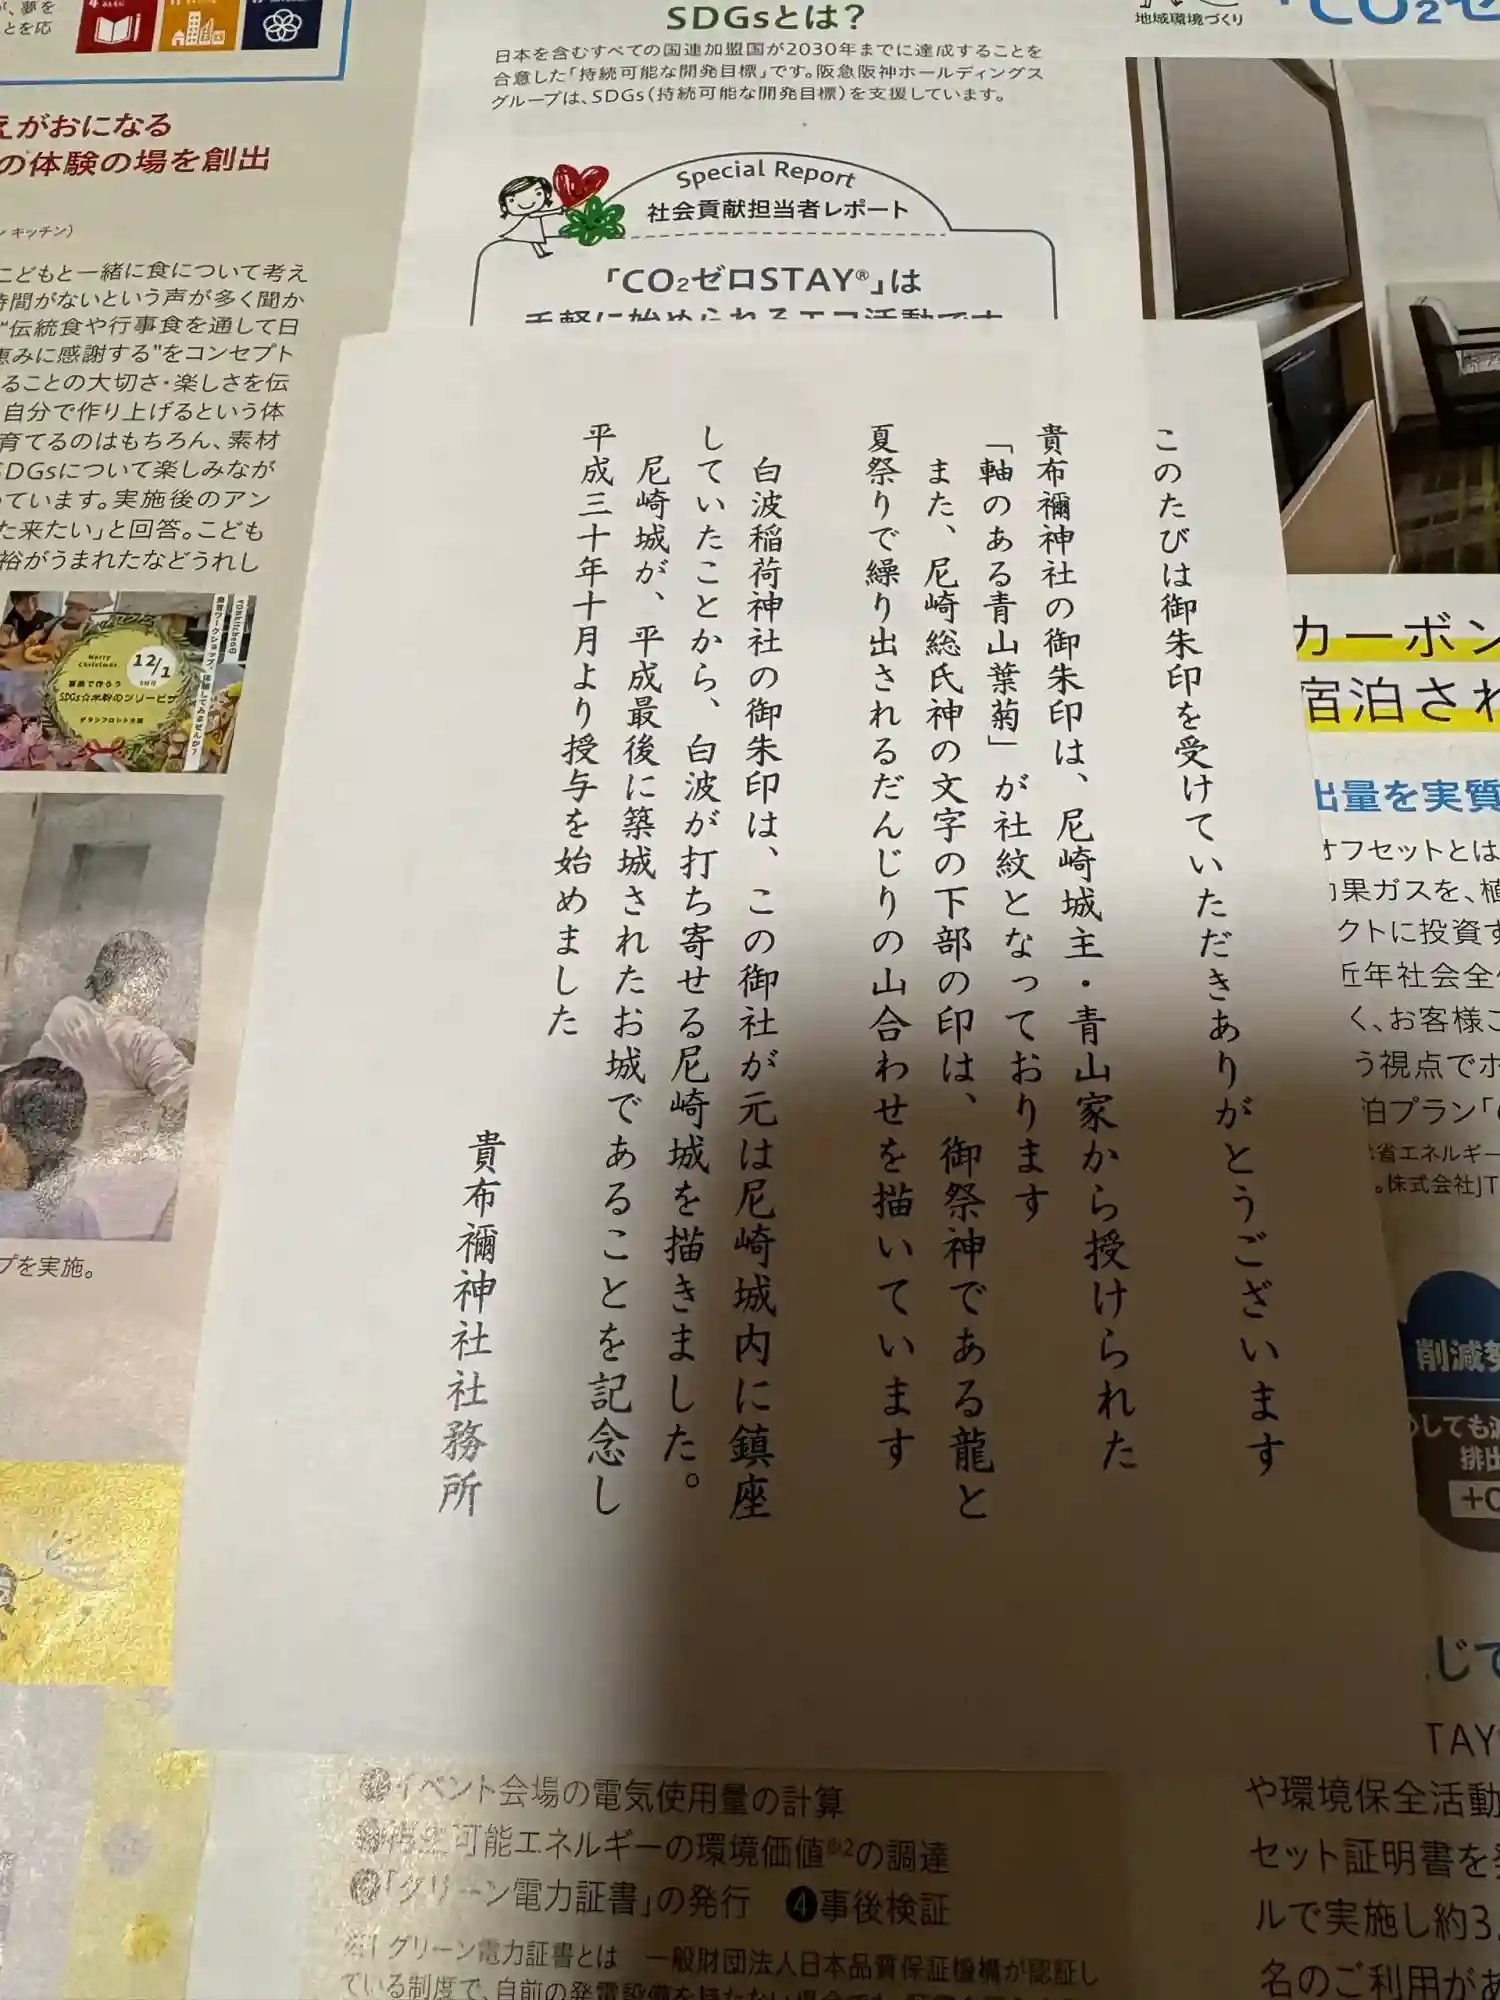 このたびは御朱印を受けていただきありがとうございます
貴布禰神社の御朱印は、尼崎城主・青山家から授けられた
「軸のある青山葉菊」が社紋となっております
また、尼崎総氏神の文字の下部の印は、御祭神である龍と
夏祭りで繰り出されるだんじりの山合わせを描いています
白波稲荷神社の御朱印は、この御社が元は尼崎城内に鎮座
していたことから、白波が打ち寄せる尼崎城を描きました。
尼崎城が、平成最後に築城されたお城であることを記念し
平成三十年十月より授与を始めました
貴布禰神社社務所
SDGsとは?
日本を含むすべての国連加盟国が2030年までに達成することを
合意した「持続可能な開発目標」です。阪急阪神ホールディングス
グループは、SDGs(持続可能な開発目標)を支援しています。
Special Report
社会貢献担当者レポート
「CO₂ゼロSTAY®」は
手軽に始められるエコ活動です
地域環境づくり
「CO₂ゼ
、夢を
とを応
えがおになる
の体験の場を創出
ン キッチン)
こどもと一緒に食について考え
時間がないという声が多く聞か
"伝統食や行事食を通して日
恵みに感謝する"をコンセプト
ることの大切さ・楽しさを伝
自分で作り上げるという体
育てるのはもちろん、素材
SDGsについて楽しみなが
っています。実施後のアン
た来たい」と回答。こども
裕がうまれたなどうれし
Merry
Christmas
12/1
プを実施。
カーボン
宿泊され
出量を実質
オフセットとは
効果ガスを、植
クトに投資す
近年社会全体
く、お客様ご
う視点でホ
泊プラン「
省エネルギー
。株式会社JT
削減努
しても減
排出
+C
じて
TAY
や環境保全活動
セット証明書を発
ルで実施し約3.
名のご利用があ
イベント会場の電気使用量の計算
再生可能エネルギーの環境価値※2の調達
「グリーン電力証書」の発行 ❹事後検証
※1 グリーン電力証書とは 一般財団法人日本品質保証機構が認証し
ている制度で、自前の発電設備を持たない場合でも、